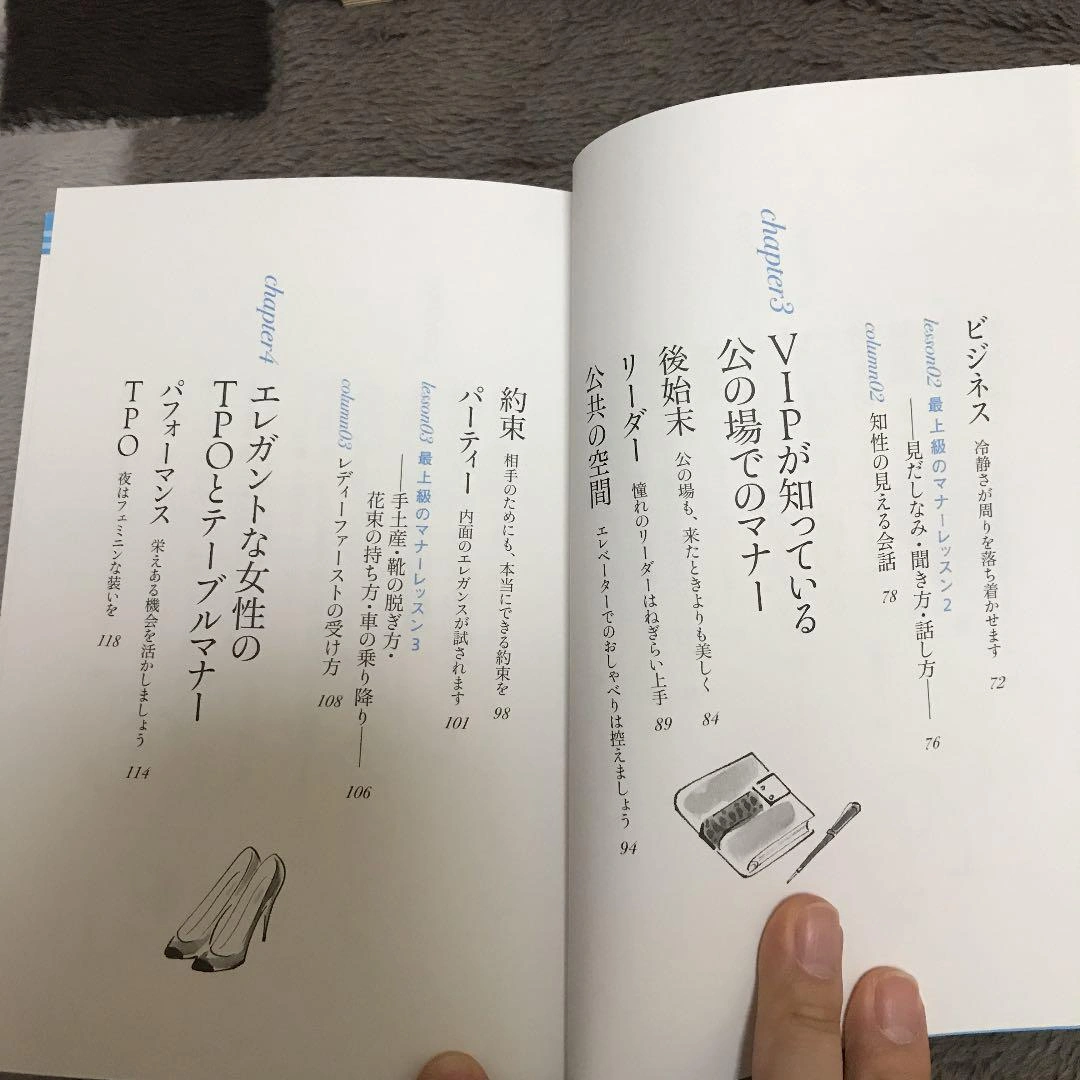 ビジネス 冷静さが周りを落ち着かせます 72
lesson02 最上級のマナーレッスン2
――見だしなみ・聞き方・話し方―― 76
column02 知性の見える会話 78
chapter3 VIPが知っている
公の場でのマナー
後始末 公の場も、来たときよりも美しく 84
リーダー 憧れのリーダーはねぎらい上手 89
公共の空間 エレベーターでのおしゃべりは控えましょう 94
約束 相手のためにも、本当にできる約束を 98
パーティー 内面のエレガンスが試されます 101
lesson03 最上級のマナーレッスン3
――手土産・靴の脱ぎ方・
花束の持ち方・車の乗り降り―― 106
column03 レディーファーストの受け方 108
chapter4 エレガントな女性の
TPOとテーブルマナー
パフォーマンス 栄えある機会を活かしましょう 114
TPO 夜はフェミニンな装いを 118